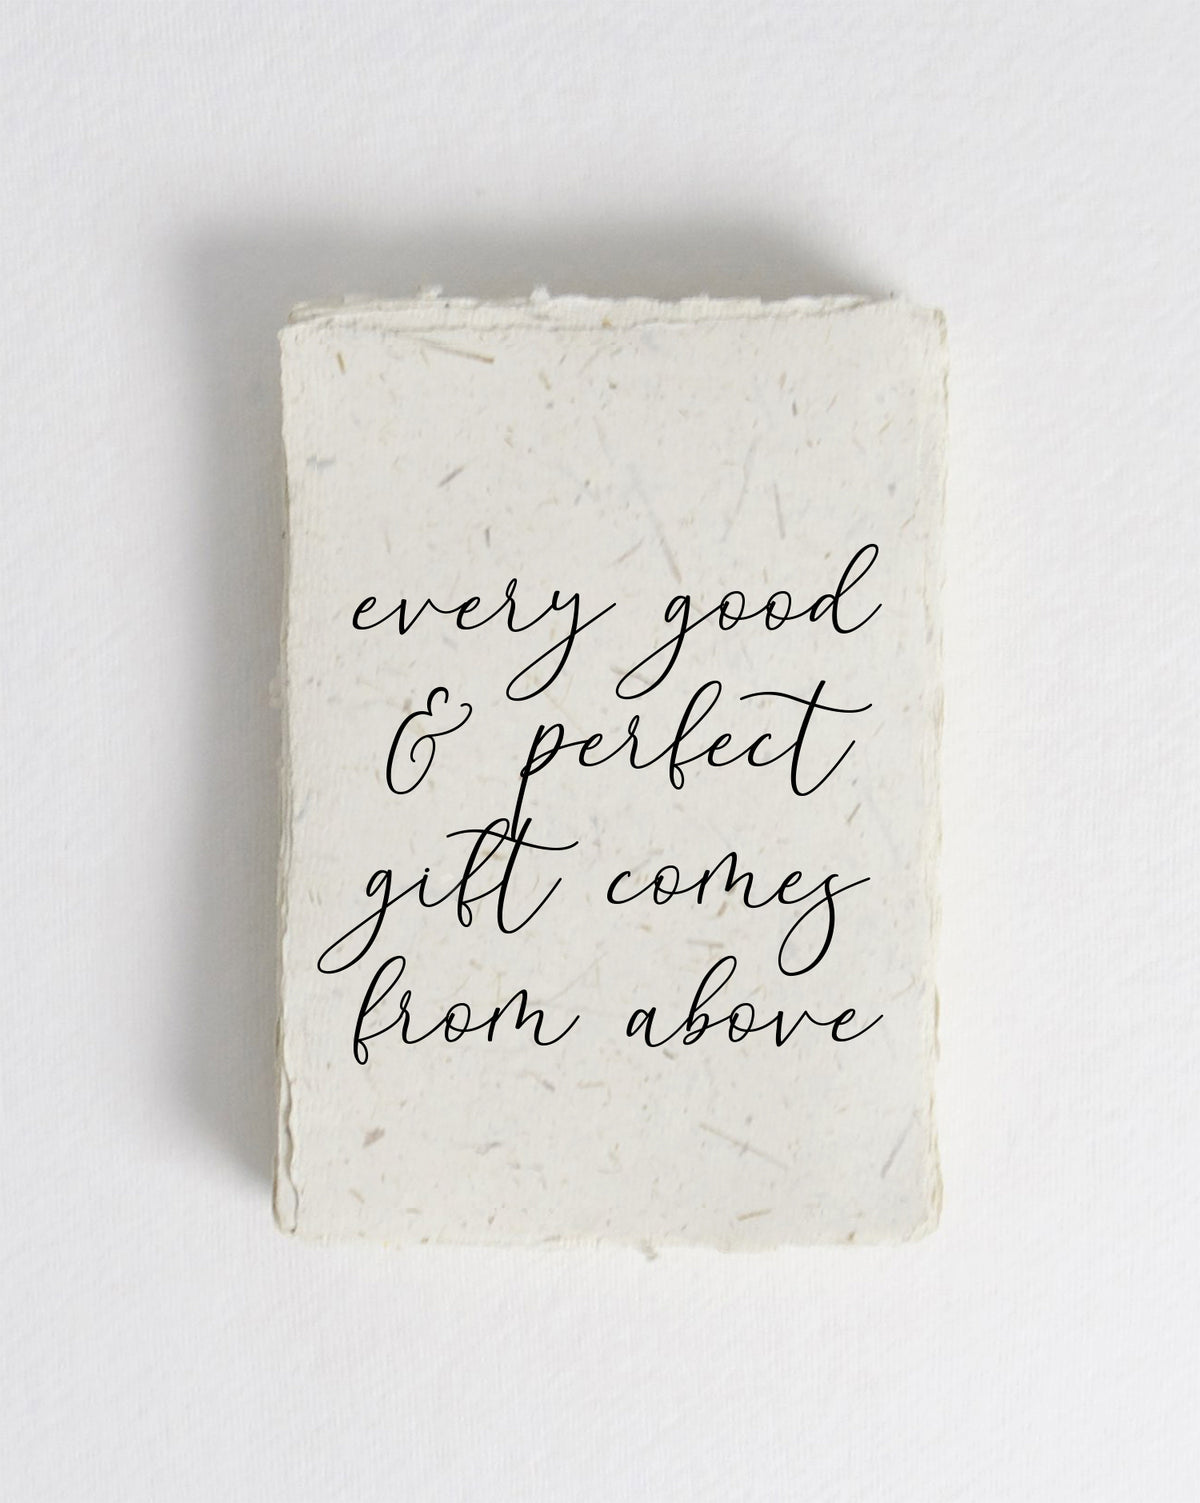 every good
& perfect
gift comes
from above